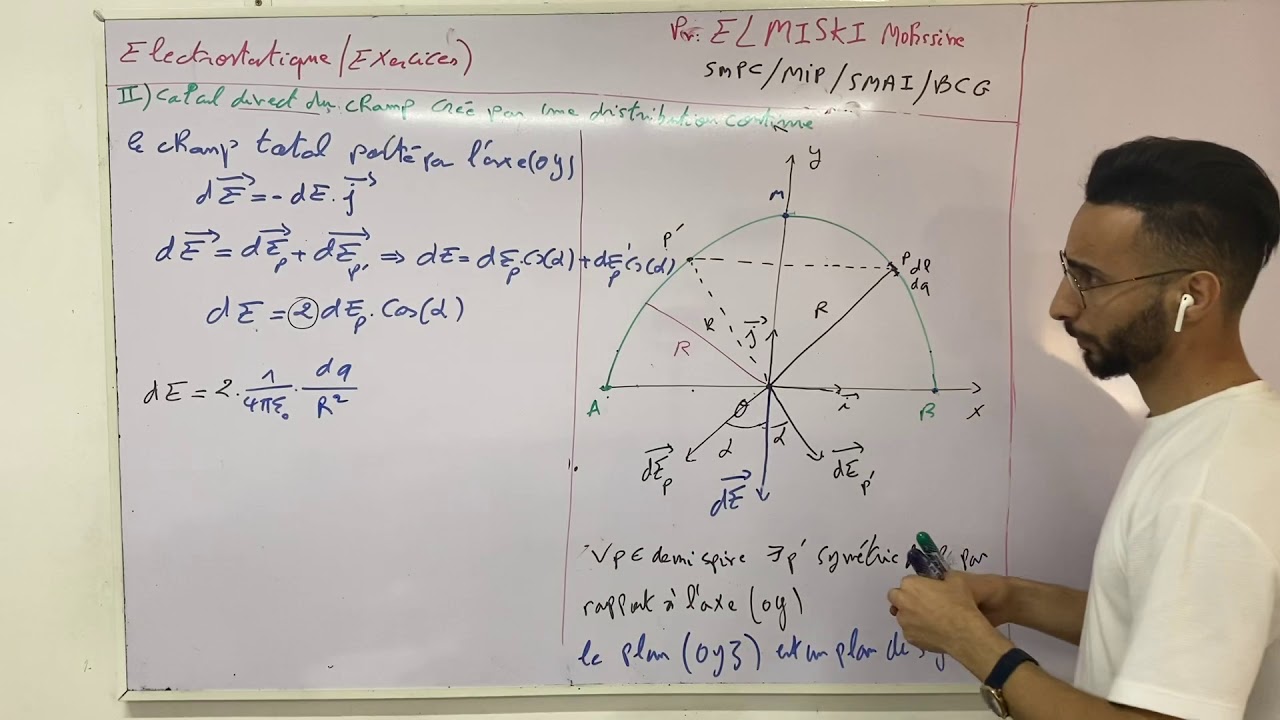 Electrostatique/(Exercices)
Par: ELMISKI Mohssine
SMPC/MIP/SMAI/BCG
II) Calcul direct du champ créé par une distribution continue
le champ total porté par l'axe (oy)
dE = - dE. j
dE = dE_p + dE_p' ⇒ dE = dE_p.Cos(α) + dE_p'.Cos(α)
dE = 2 dE_p . Cos(α)
dE = 2. 1/4πε₀ . dq/R²
y
M
p'
P dl
dq
R
R
R
j
A
O
i
B
x
α
α
dE_p
dE
dE_p'
∀p∈ demi spire ∃p' symétric par
rapport à l'axe (oy)
le plan (oyz) est un plan de